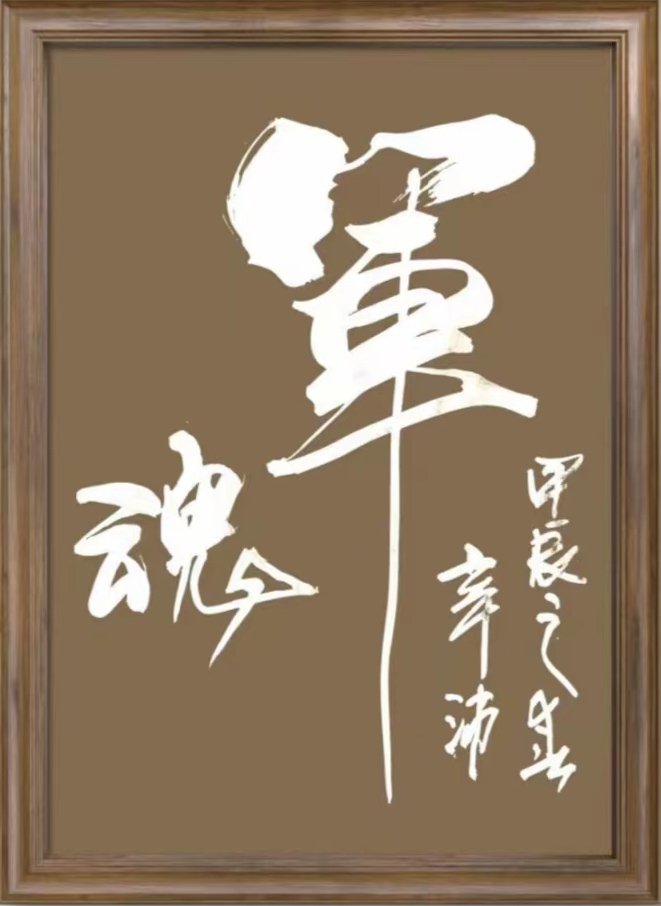 軍
魂
甲辰之春
辛沛